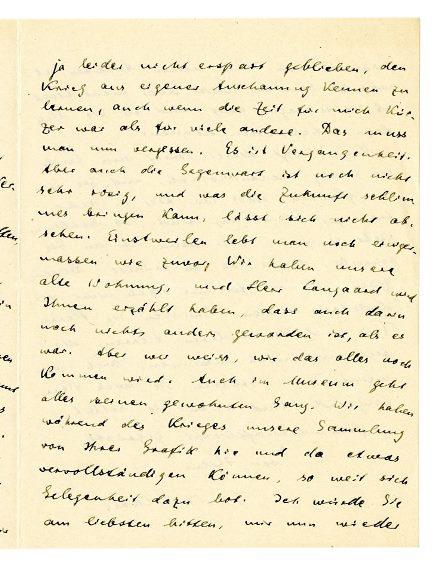 ja leider nicht erspart geblieben, den
Krieg aus eigener Anschauung kennen zu
lernen, auch wenn die Zeit für mich kür-
zer war als für viele andere. Das muss
man nun vergessen. Es ist Vergangenheit.
Aber auch die Gegenwart ist noch nicht
sehr rosig, und was die Zukunft schlim-
mes bringen kann, lässt sich nicht ab-
sehen. Einstweilen lebt man noch einiger-
massen wie zuvor. Wir haben unsere
alte Wohnung, und Herr Langaard wird
Ihnen erzählt haben, dass auch darin
noch nichts anders geworden ist, als es
war. Aber wer weiss, wie das alles noch
kommen wird. Auch im Museum geht
alles seinen gewohnten Gang. Wir haben
während des Krieges unsere Sammlung
von Ihrer Grafik hie und da etwas
vervollständigen können, so weit sich
Gelegenheit dazu bot. Ich würde Sie
am liebsten bitten, mir nun wieder